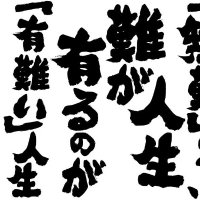 人生
難が
有るのが
「有難い」人生